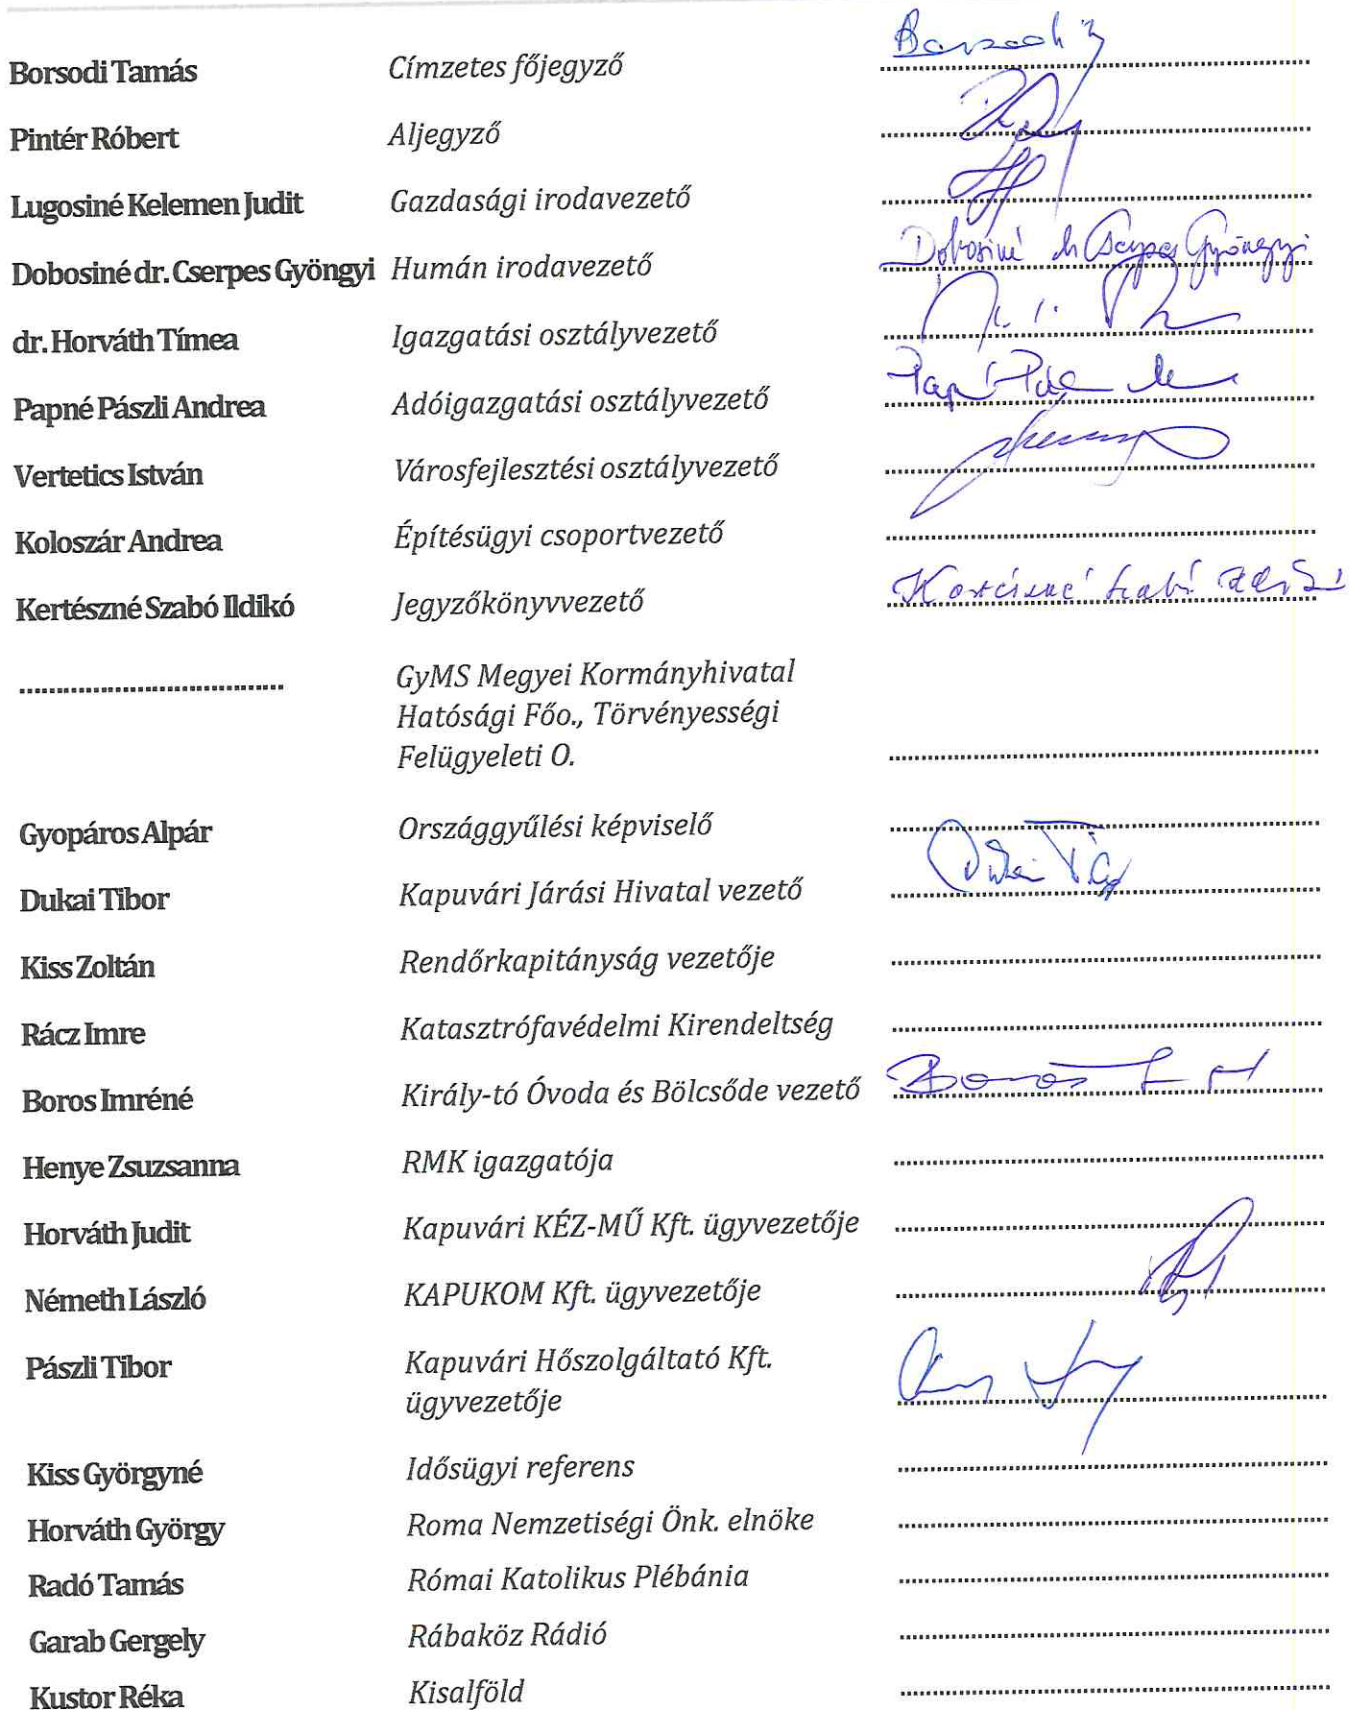 Borsodi Tamás Címzetes főjegyző
Pintér Róbert Aljegyző
Lugosiné Kelemen Judit Gazdasági irodavezető
Dobosiné dr. Cserpes Gyöngyi Humán irodavezető Dobosiné dr Cserpes Gyöngyi
dr. Horváth Tímea Igazgatási osztályvezető
Papné Pászli Andrea Adóigazgatási osztályvezető
Vertetics István Városfejlesztési osztályvezető
Koloszár Andrea Építésügyi csoportvezető
Kertészné Szabó Ildikó Jegyzőkönyvvezető
GyMS Megyei Kormányhivatal
Hatósági Főo., Törvényességi
Felügyeleti O.
Gyopáros Alpár Országgyűlési képviselő
Dukai Tibor Kapuvári Járási Hivatal vezető
Kiss Zoltán Rendőrkapitányság vezetője
Rácz Imre Katasztrófavédelmi Kirendeltség
Boros Imréné Király-tó Óvoda és Bölcsőde vezető Boros
Henye Zsuzsanna RMK igazgatója
Horváth Judit Kapuvári KÉZ-MŰ Kft. ügyvezetője
Németh László KAPUKOM Kft. ügyvezetője
Pászli Tibor Kapuvári Hőszolgáltató Kft.
ügyvezetője
Kiss Györgyné Idősügyi referens
Horváth György Roma Nemzetiségi Önk. elnöke
Radó Tamás Római Katolikus Plébánia
Garab Gergely Rábaköz Rádió
Kustor Réka Kisalföld